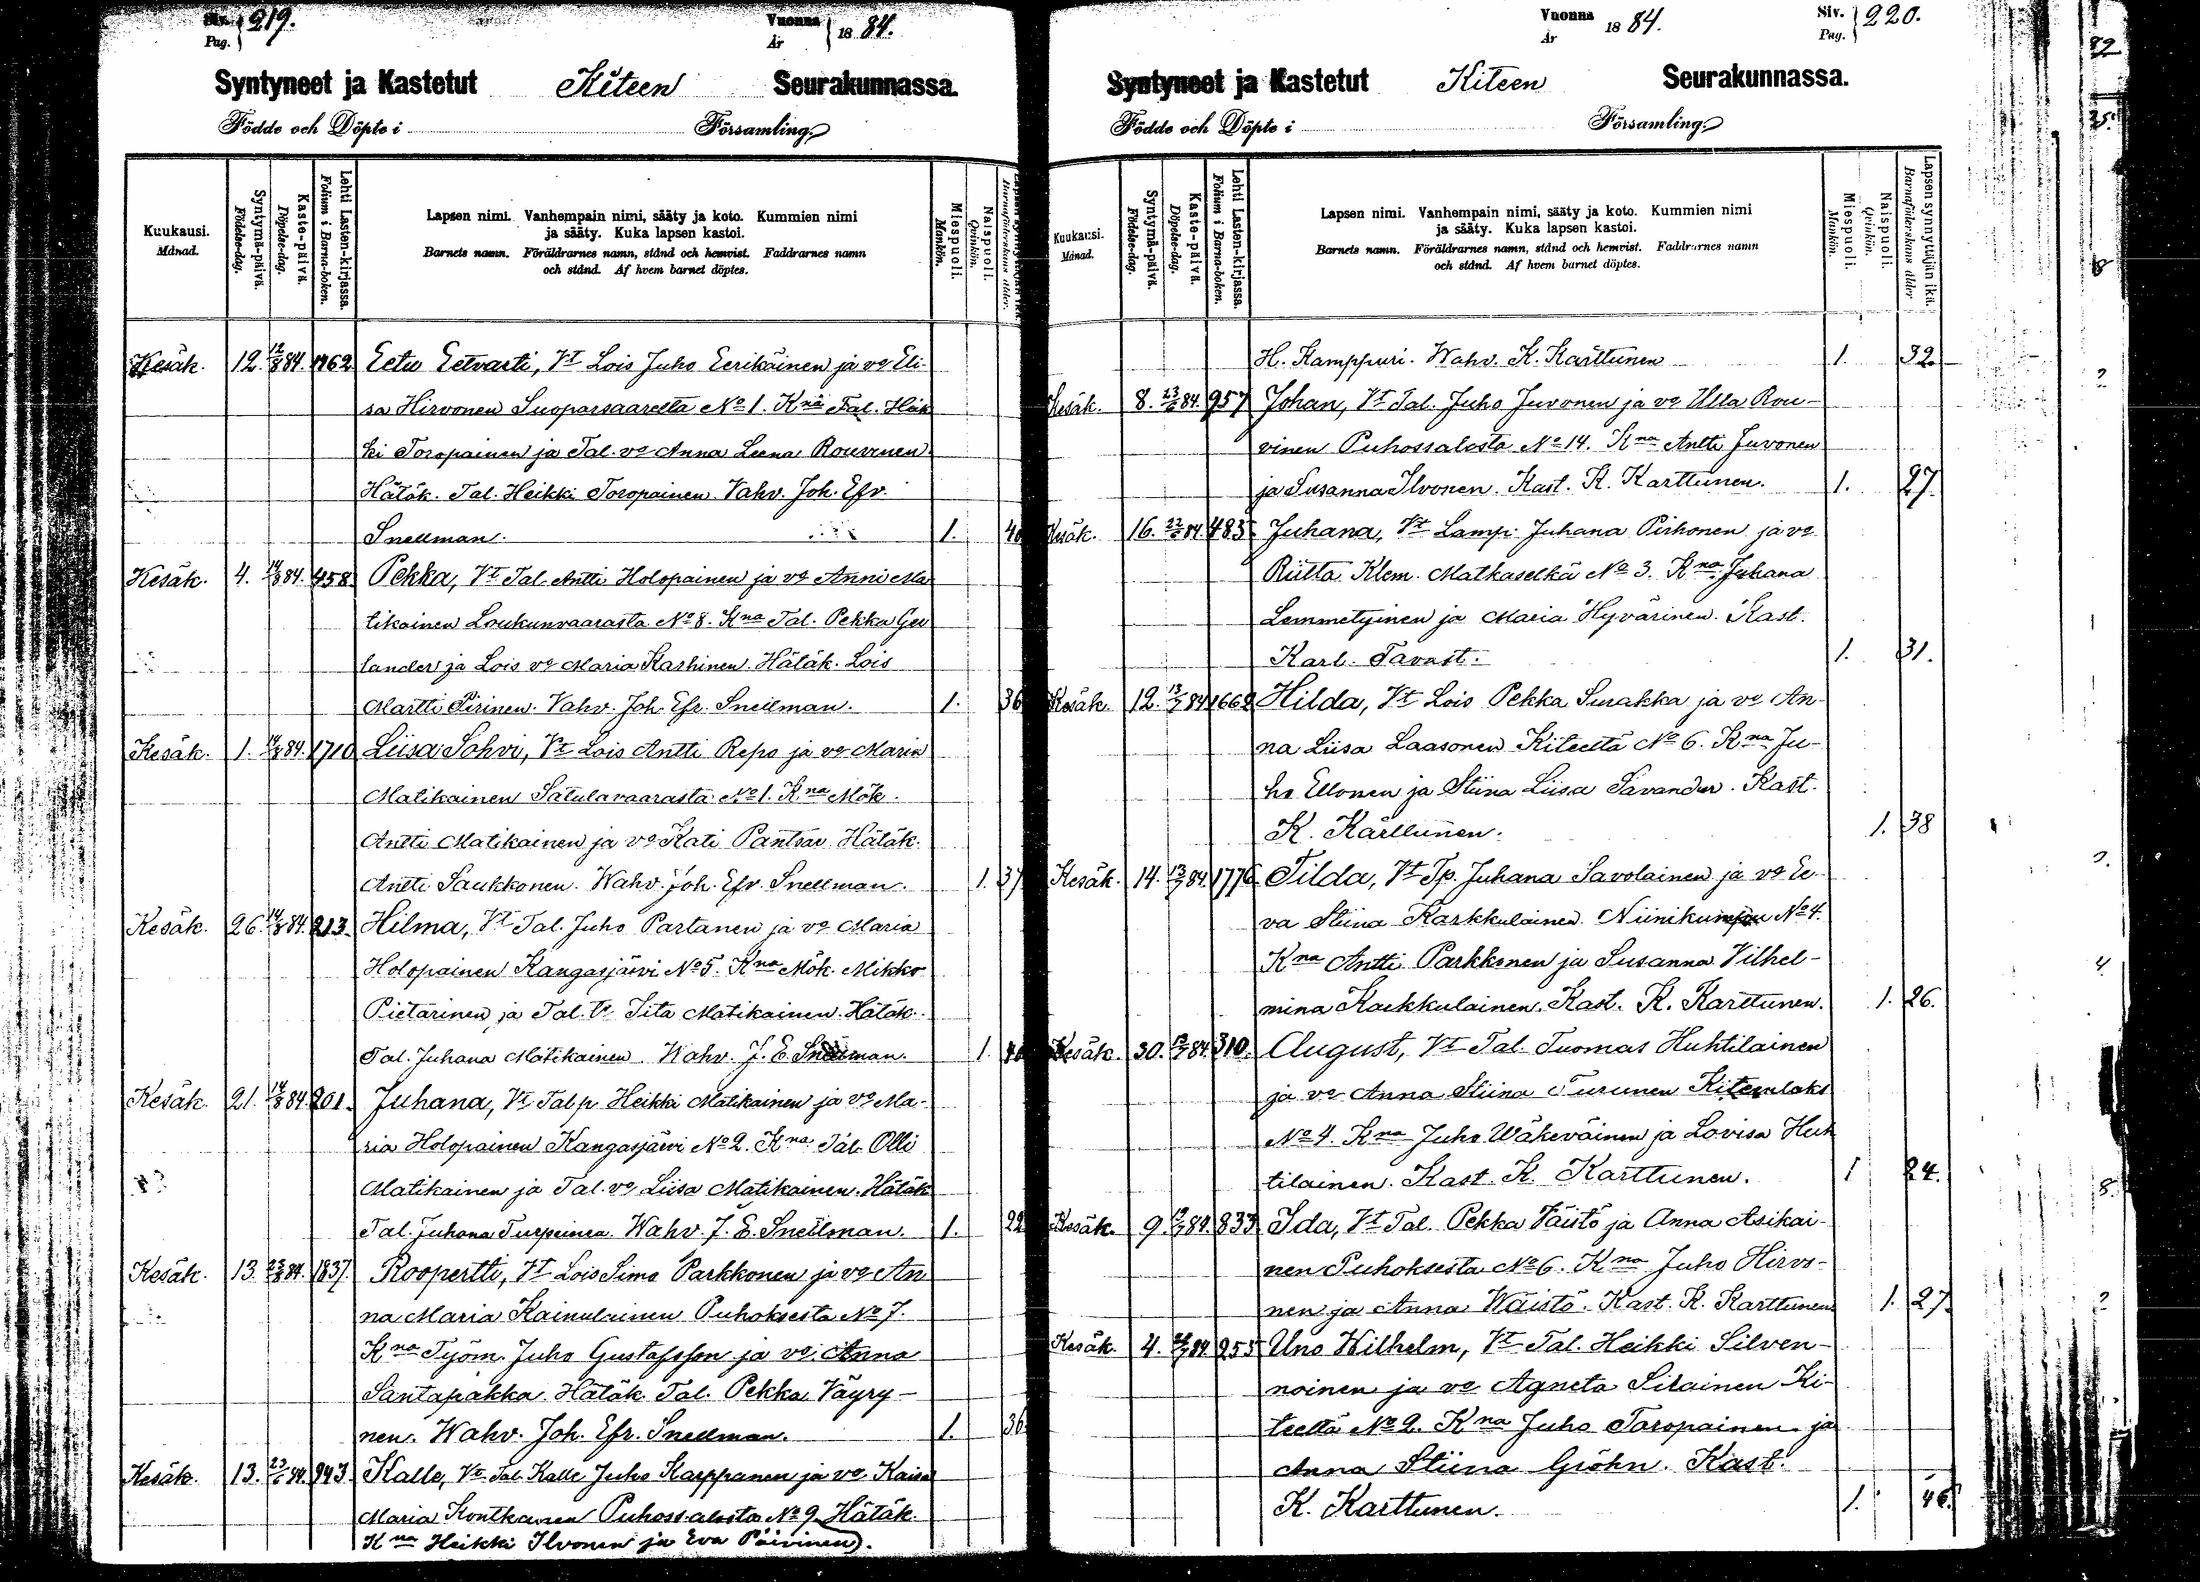 Siv. Pag. 219. Vuonna År 1884.
Syntyneet ja Kastetut Kiteen Seurakunnassa.
Födde och Döpte i Församling.
Kuukausi. Månad.
Syntymä-päivä. Födelse-dag.
Kaste-päivä. Döpelse-dag.
Lehti Lasten-kirjassa. Folium i Barna-boken.
Lapsen nimi. Vanhempain nimi, sääty ja koto. Kummien nimi
ja sääty. Kuka lapsen kastoi.
Barnets namn. Föräldrarnes namn, stånd och hemvist. Faddrarnes namn
och stånd. Af hvem barnet döptes.
Miespuoli. Mankön.
Naispuoli. Qvinkön.
Kesäk. 12. 12/8 84. 1762 Eetu Eetvarti, Vt Lois Juho Eerikäinen ja vo Eli-
sa Hirvonen Suoparsaarelta No 1. Kna Tal. Heik
ki Toropainen ja Tal. vo Anna Leena Rouvinen.
Hätäk. Tal. Heikki Toropainen Vahv. Joh. Efr.
Snellman. 1. 40
Kesäk. 4. 14/8 84. 458 Pekka, Vt Tal. Antti Holopainen ja vo Anni Ma
tikainen Loukunvaarasta No 8. Kna Tal. Pekka Ger
lander ja Lois vo Maria Karhinen. Hätäk. Lois
Martti Pirinen. Vahv. Joh. Efr. Snellman. 1. 36
Kesäk. 1. 14/8 84. 1710 Liisa Sohvi, Vt Lois Antti Repo ja vo Maria
Matikainen Satulavaarasta No 1. Kna Mök.
Antti Matikainen ja vo Kati Pantsar Hätäk.
Antti Saukkonen. Wahv. Joh. Efr. Snellman. 1. 37
Kesäk. 26. 14/8 84. 213. Hilma, Vt Tal. Juho Partanen ja vo Maria
Holopainen Kangasjärvi No 5. Kna Mök. Mikko
Pietarinen ja Tal. Vo Tita Matikainen. Hätäk.
Tal. Juhana Matikainen Wahv. J. E. Snellman. 1.
Kesäk. 21. 14/8 84. 201. Juhana, Vt Talp Heikki Matikainen ja vo Ma-
ria Holopainen Kangasjärvi No 2. Kna Tal. Olli
Matikainen ja Tal. vo Liisa Matikainen. Hätäk
Tal. Juhana Turpeinen. Wahv. J. E. Snellman. 1. 22
Kesäk. 13. 23/8 84. 1837. Roopertti, Vt Lois Simo Parkkonen ja vo An
na Maria Kainulainen Puhoksesta No 7.
Kna Työm. Juho Gustafsson ja vo Anna
Santapakka. Hätäk. Tal. Pekka Väyry-
nen. Wahv. Joh. Efr. Snellman. 1. 36
Kesäk. 13. 84. 943 Kalle, Vt Tal. Kalle Juho Karppanen ja vo Kaisa
Maria Kontkanen Puhossalosta No 9 Hätäk.
Kna Heikki Ilvonen ja Eva Päivinen).
Vuonna År 1884. Siv. Pag. 220.
Syntyneet ja Kastetut Kiteen Seurakunnassa.
Födde och Döpte i Församling.
Kuukausi. Månad.
Syntymä-päivä. Födelse-dag.
Kaste-päivä. Döpelse-dag.
Lehti Lasten-kirjassa. Folium i Barna-boken.
Lapsen nimi. Vanhempain nimi, sääty ja koto. Kummien nimi
ja sääty. Kuka lapsen kastoi.
Barnets namn. Föräldrarnes namn, stånd och hemvist. Faddrarnes namn
och stånd. Af hvem barnet döptes.
Miespuoli. Mankön.
Naispuoli. Qvinkön.
Lapsensynnyttäjän ikä. Barnaföderskans ålder
H. Kamppuri. Wahv. K. Karttunen 1. 32
Kesäk. 8. 84. 957 Johan, Vt Tal. Juho Juvonen ja vo Ulla Rou-
vinen Puhossalosta No 14. Kna Antti Juvonen
ja Susanna Ilvonen. Kast. K. Karttunen. 1. 27.
Kesäk. 16. 84. 485 Juhana, Vt Lamp. Juhana Pirhonen ja vo
Riitta Klem. Matkaselkä No 3. Kna Juhana
Lemmetyinen ja Maria Hyvärinen. Kast.
Karl. Tavast. 1. 31.
Kesäk. 12. 84. 1662 Hilda, Vt Lois Pekka Surakka ja vo An-
na Liisa Laasonen Kiteeltä No 6. Kna Ju-
ho Ellonen ja Stiina Liisa Tavander. Kast.
K. Karttunen. 1. 38
Kesäk. 14. 84. 1776 Tilda, Vt Tp. Juhana Savolainen ja vo Ee-
va Stiina Karkkulainen Niinikumpu No 4.
Kna Antti Parkkonen ja Susanna Vilhel-
mina Karkkulainen. Kast. K. Karttunen. 1. 26.
Kesäk. 30. 84. 310. August, Vt Tal. Tuomas Huhtilainen
ja vo Anna Stiina Turunen Kiteenlaks
No 4. Kna Juho Wäkeväinen ja Lovisa Huh
tilainen. Kast. K. Karttunen. 1 24.
Kesäk. 9. 84. 833 Ida, Vt Tal. Pekka Väistö ja Anna Asikai-
nen Puhoksesta No 6. Kna Juho Hirvo-
nen ja Anna Wäistö. Kast. K. Karttunen 1. 27.
Kesäk. 4. 84. 955 Uno Wilhelm, Vt Tal. Heikki Silven-
noinen ja vo Agneta Silainen Ki-
teeltä No 2. Kna Juho Toropainen ja
Anna Stiina Gröhn. Kast.
K. Karttunen. 1. 46.